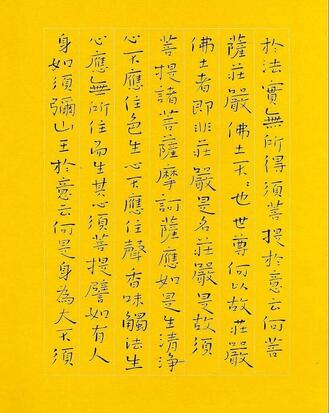 於法實無所得須菩提於意云何菩
薩莊嚴佛土不〻也世尊何以故莊嚴
佛土者即非莊嚴是名莊嚴是故須
菩提諸菩薩摩訶薩應如是生清淨
心不應住色生心不應住聲香味觸法生
心應無所住而生其心須菩提譬如有人
身如須彌山王於意云何是身為大不須